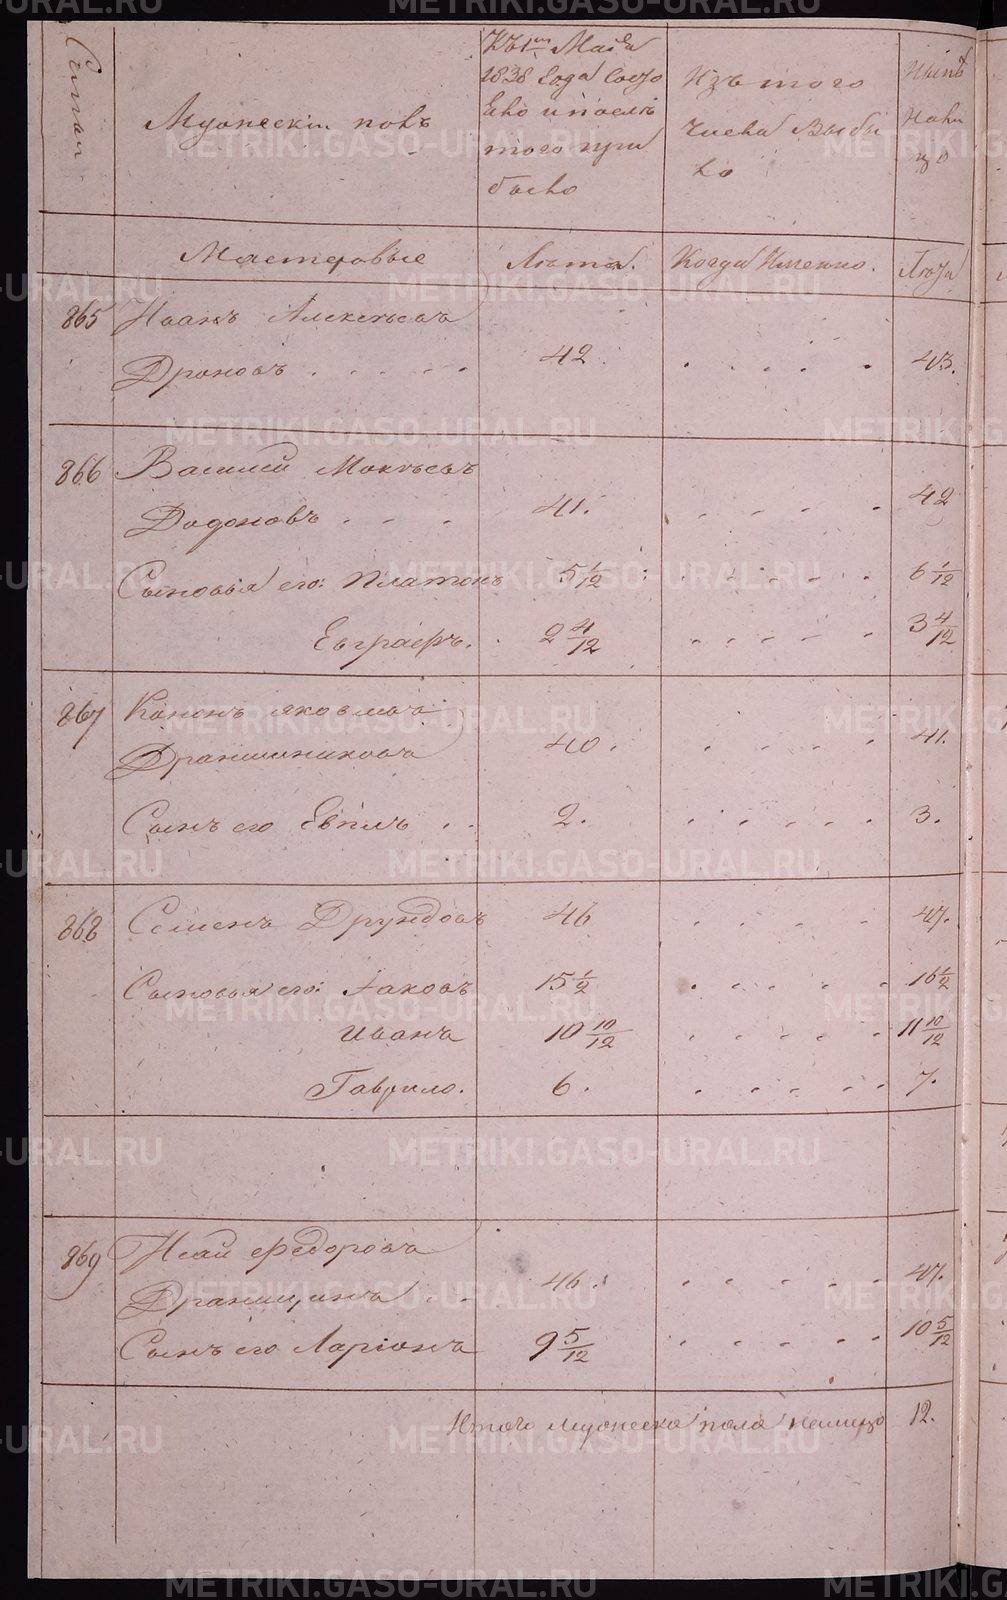 Семьи
Мужескій полъ
Къ 1му Маія
1838 Года Состо
яло и послѣ
того при
было
Изъ того
числа выбы
ло
Нынѣ
Нали
цо
Мастеровые
Лѣта.
Когда Именно.
Лѣта
865 Иванъ Алексѣевъ
Дроновъ . . . . . 42 . . . . . 43.
866 Василей Мокѣевъ
Додоновъ . . . 41. . . . . . 42
Сыновья его: Платонъ 5 1/12 . . . . . 6 1/12
Евграфъ. . 2 4/12 . . . . . 3 4/12
867 Кононъ Яковлевъ
Дранишниковъ 40. . . . . . 41.
Сынъ его Евплъ . . 2. . . . . . 3.
868 Семенъ Друндовъ 46 . . . . . 47.
Сыновья его: Яковъ 15 1/2 . . . . . 16 1/2
Иванъ 10 10/12 . . . . . 11 10/12
Гаврило. 6. . . . . . 7.
869 Исай Федоровъ
Дранищинъ . . 46. . . . . . 47.
Сынъ его Ларіонъ 9 5/12 . . . . . 10 5/12
Итого мужеска пола налицо 12.
METRIKI.GASO-URAL.RU